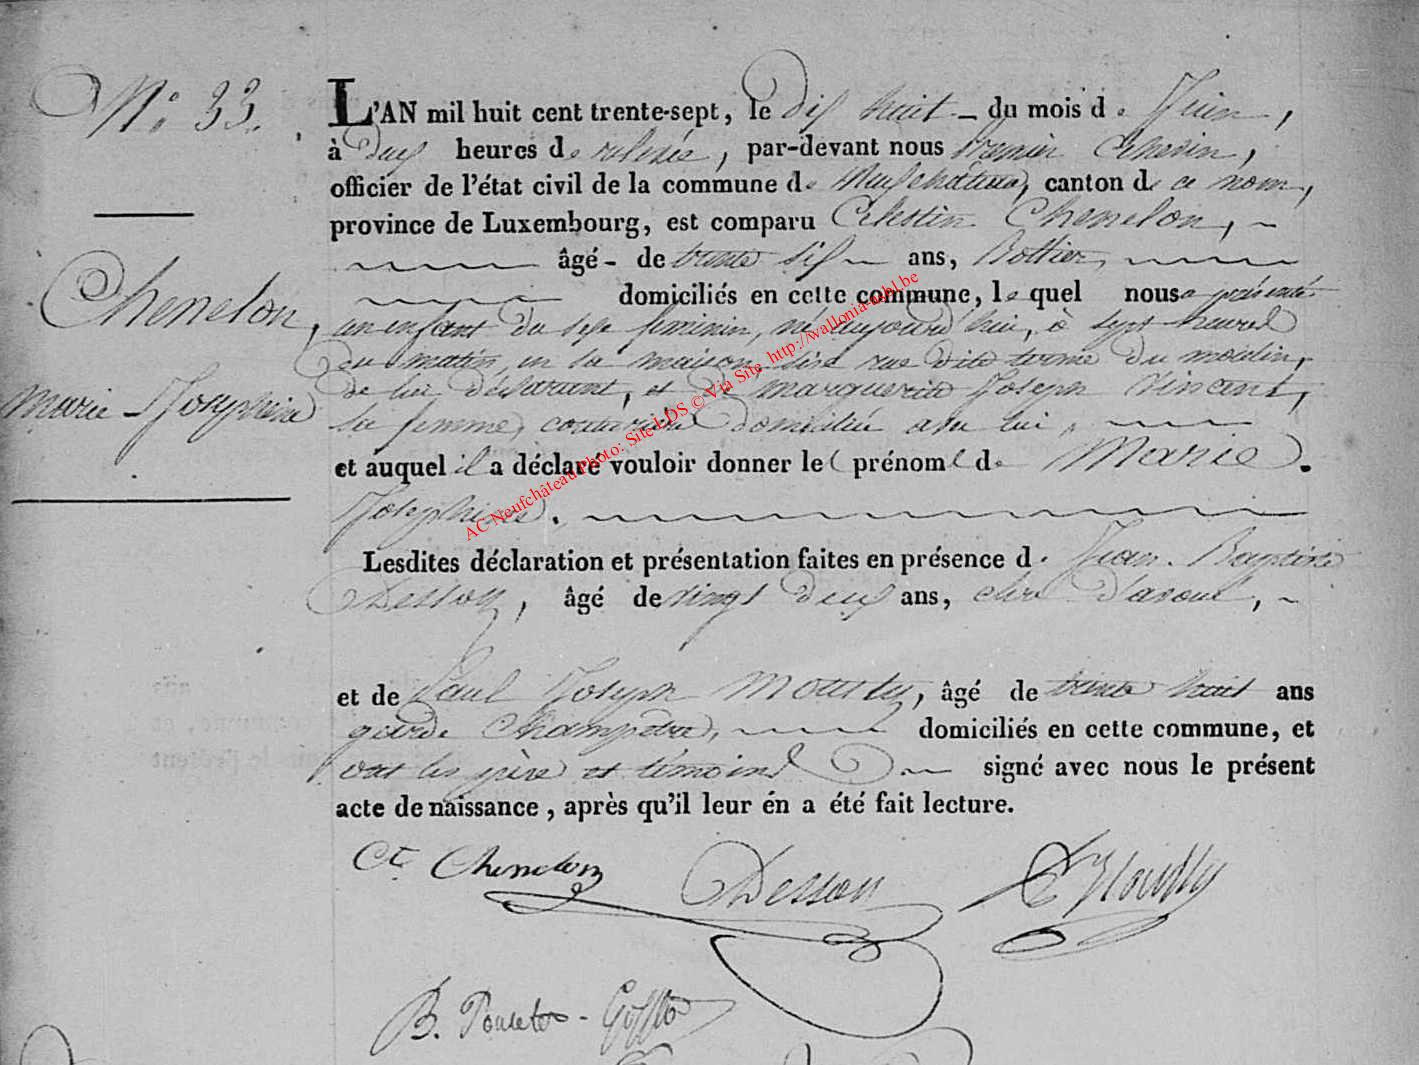 N.° 33.
L'AN mil huit cent trente-sept, le dix huit du mois de Juin,
à deux heures de relevée, par-devant nous premier Echevin,
officier de l'état civil de la commune de Neufchateau, canton de ce nom,
province de Luxembourg, est comparu Celestin Chenelon,
âgé de trente six ans, Bottier,
Chenelon,
domiciliés en cette commune, lequel nous a présenté
un enfant du sexe feminin, né aujourd'hui, à sept heures
du matin, en sa maison, sise rue dite terme du moulin,
Marie Josephine
de lui déclarant, et de Marguerite Joseph Vincent,
sa femme, domiciliée avec lui,
et auquel il a déclaré vouloir donner les prénoms de Marie.
Josephine.
Lesdites déclaration et présentation faites en présence de Jean Baptiste
Desson, âgé de vingt deux ans, clerc d'avoué,
et de Paul Joseph Mousty, âgé de trente huit ans
garde Champêtre, domiciliés en cette commune, et
ont les père et témoins signé avec nous le présent
acte de naissance, après qu'il leur én a été fait lecture.
Ct. Chenelon Desson Mousty
B. Poncelet-
AC Neufchâteau Photo: Site LDS © Via Site http://wallonia-asbl.be